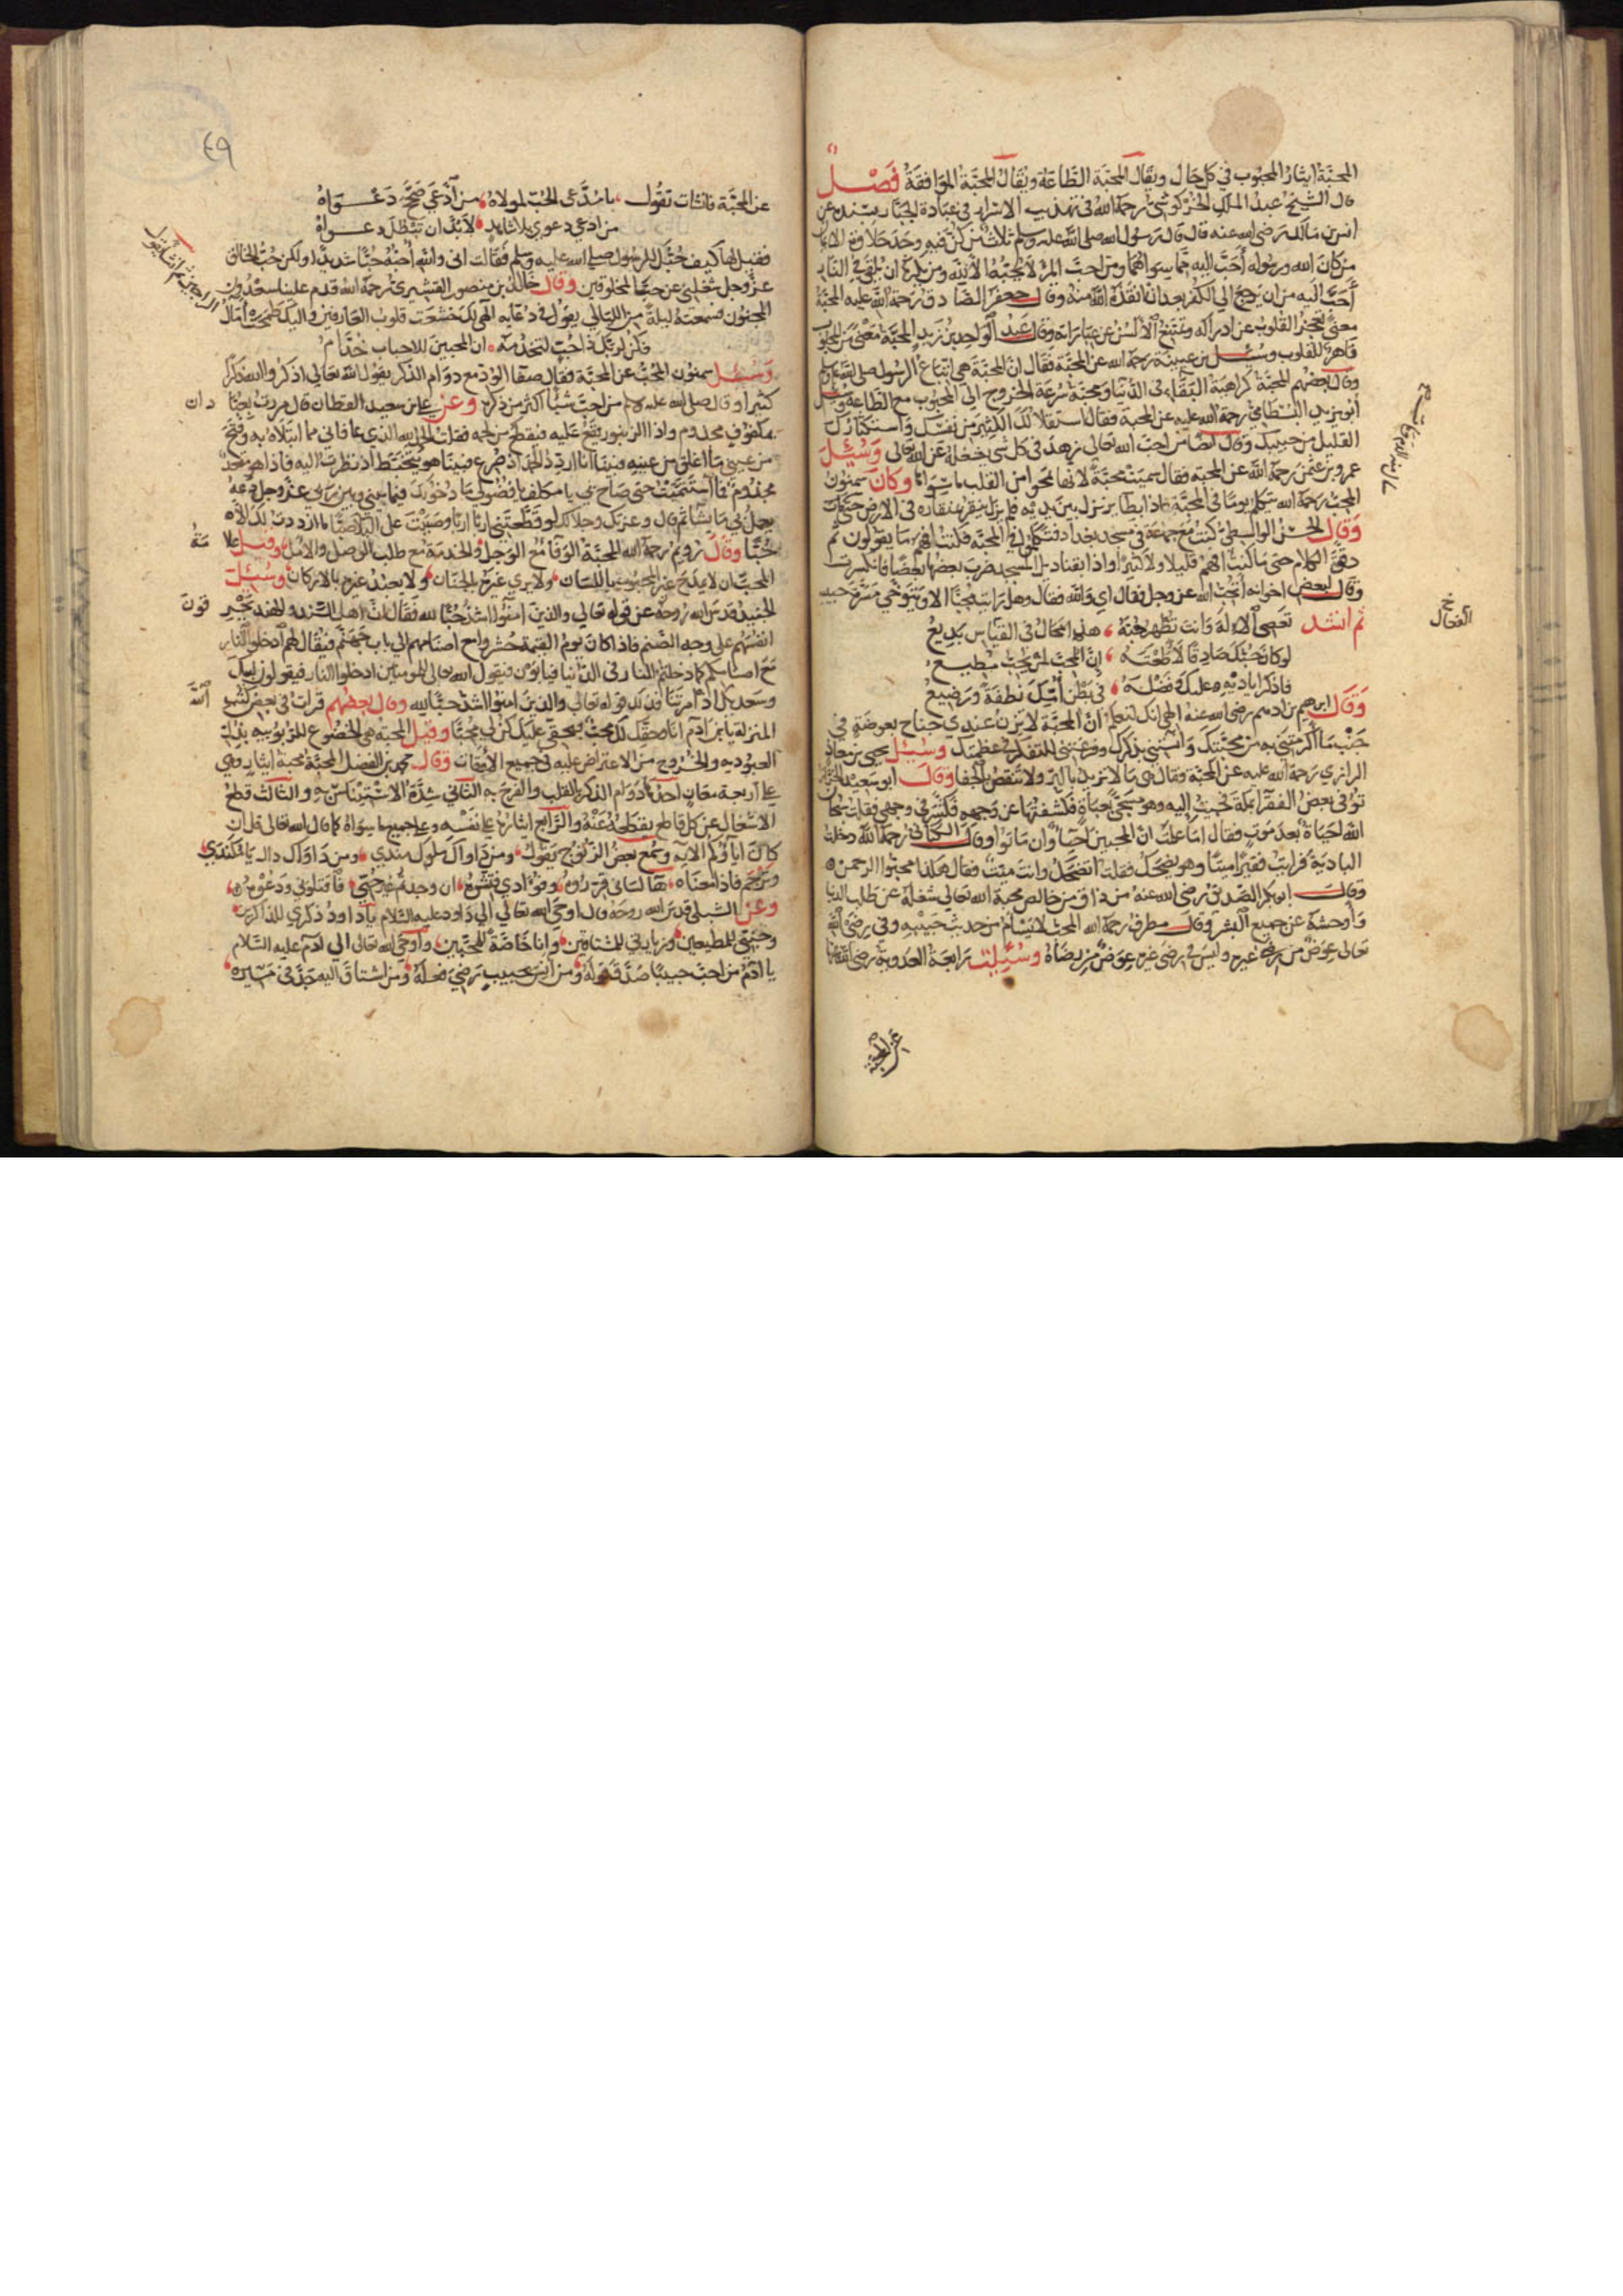 المحبَّة ايثار المحبوب في كل حال ويقال المحبّة الطّاعة ويقال المحبّة الموافقة فصْل
قال الشيخ عبد الملك الخركوشي رحمه الله في تهذيب الاسرار في عبادة الجبار بسنده عن
انس بن مالك رضي الله عنه قال قال رسول الله صلى الله عليه وسلم ثلاث من كنّ فيه وجد حلاوة الايمان
من كان الله ورسوله أحبّ اليه مما سواهما ومن احبّ المرء لا يحبّه الا لله ومن يكره ان يلقى في النار
أحبّ اليه من ان يرجع الى الكفر بعد اذ انقذه الله منه وقال جعفر الصادق رحمة الله عليه المحبّة
معنى تعجز القلوب عن ادراكه وتمتنع الألسن عن عباراته وقال عبد الواحد بن زيد المحبّة معنى من المحبوب
قاهر للقلوب وسئل بن عيينة رحمه الله عن المحبّة فقال ان المحبّة هي اتباع الرسول صلى الله عليه وسلم
وقال بعضهم المحبّة كراهية البقاء في الدنيا ومحبّة سرعة الخروج الى المحبوب مع الطاعة وسئل
أبو يزيد البسطامي رحمة الله عليه عن المحبة فقال استقلالك الكثير من نفسك واستكثارك
القليل من حبيبك وقال ايضا من احبّ الله تعالى زهد في كل شيء يشغله عن الله تعالى وسُئِل
عمرو بن عثمن رحمه الله عن المحبة فقال سمّيت محبّة لانها تمحو من القلب ما سواها وكان سمنون
المحب رحمه الله يتكلم يوما في المحبّة فاذا بطاير نزل بين يديه فلم يزل ينقر بمنقاره في الارض حتى مات
وقال الحسن الواسطي كنت مع جماعة في مسجد ببغداد فتكلموا في المحبة فكنت افهم ما يقولون ثم
دقّ الكلام حتى ما كنت افهم قليلا ولا كثيرا واذا بقناديل المسجد ضرب بعضها بعضا فانكسرت
وقال لبعض اخوانه أتحب الله عز وجل فقال اي والله فقال وهل رايت محبّا الا ويتوخى مسرّة حبيبه
ثم انشد تعصي الاله وأنت تظهر حبّه هذا محال في القياس بديع
لو كان حبّك صادقا لأطعته إنّ المحبّ لمن يحبّ مطيع
فاذكر اياديه عليك وفضله في بطن أمّك نطفة ورضيع
وقال ابرهيم بن ادهم رضي الله عنه الهي انك لتعلم أنّ المحبّة لا يزن عندي جناح بعوضة في
جنب ما أكرمتني به من محبّتك وآنستني بذكرك وفرغتني للتفكر في عظمتك وسئل يحيى بن معاذ
الرازي رحمة الله عليه عن المحبّة فقال هي ما لا تزيد بالبرّ ولا تنقص بالجفا وقال ابو سعيد الخراز
توفي بعض الفقراء بمكة فجيت إليه وهو مسجّى بعباة فكشفتها عن وجهه فكشّر في وجهي فقلت سبحان
الله احياة بعد موت فقال اما علمت ان المحبين احياء وان ماتوا وقال الكتاني رحمه الله دخلت
البادية فرايت فقيرا ميتا وهو يضحك فقلت اتضحك وانت ميّت فقال هكذا محبّوا الرحمن
وقال ابو بكر الصّديق رضي الله عنه من ذاق من خالص محبة الله تعالى شغله عن طلب الدنيا
وأوحشه عن جميع البشر وقال مطرف رحمه الله المحب لا يسأم من حديث حبيبه وفي رضى الله
تعالى عوض من رضى غيره وليس في رضى غيره عوض من رضاه وسُئِلت رابعة العدوية رضي الله عنها
خ
الفعال
عن المحبة
٤٩
عن المحبّة فانشات تقول يا مدّعي الحُبّ لمولاه من ادّعى صحّح دعواه
من ادعى دعوى بلا شاهد لا بدّ ان تبطل دعواه
فقيل لها كيف حبّك للرسول صلى الله عليه وسلم فقالت اني والله أحبّه حبّا شديدا ولكن حبّ الخالق
عزّ وجل شغلني عن حبّ المخلوقين وقال خالد بن منصور القشيري رحمه الله قدم علينا سعدون
المجنون فسمعته ليلة من الليالي يقول في دعايه الهي لك خشعت قلوب العارفين واليك طمحت آمال
الراجين ثم انشا يقول
فكن لربّك ذا حبّ لتخدمه ان المحبين للاحباب خدّام
وسُئِل سمنون المحبّ عن المحبّة فقال صفاء الودّ مع دوام الذكر بقول الله تعالى اذكروا الله ذكرا
كثيرا وقال صلى الله عليه وسلم من احبّ شيئا أكثر من ذكره وعن علي بن سعيد القطان قال مررت بعبّادان
بمكفوف مجذوم واذا الزنبور يقع عليه فيقطع من لحمه فقلت الحمد لله الذي عافاني مما ابتلاه به وفتح
من عيني ما أغلق من عينيه فبينما أنا اردّد الحمد اذ صُرع فبينا هو يتخبّط اذ نظرت اليه فاذا هو مقعد
مجذوم فما استتممت حتى صاح بي يا مكلف يا فضولي ما دخولك فيما بيني وبين ربي عز وجل دعه
يعمل بي ما يشا ثم قال وعزتك وجلالك لو قطّعتني إربا اربا وصببت عليّ البلاء صبّا ما ازددت لك الا
حُبّا وقال رويم رحمه الله المحبّة الوفا مع الوجل والخدمة مع طلب الوصل والامل وقيل علامة
المحب ان لا يمدح غير المحبوب باللسان ولا يرى غيره بالجنان ولا يعبد غيره بالاركان وسُئِل
الجنيد قدس الله روحه عن قوله تعالى والذين امنوا اشدّ حبّا لله فقال انّ اهل السند والهند يحرقون
انفسهم على وجه الصّنم فاذا كان يوم القيمة حشر ارواح اصنامهم الى باب جهنّم فيقال لهم ادخلوا النار
مع اصنامكم كما دخلتم النار في الدّنيا فيابون فيقول الله تعالى للمومنين ادخلوا النار فيقولون لبيك
وسعديك اذ أمرتنا فذلك قوله تعالى والذين امنوا اشدّ حبّا لله وقال بعضهم قرات في بعض كتب الله
المنزلة يا بن آدم انا وحقّك لك محبّ فبحقّي عليك كن لي محبّا وقيل المحبة هي الخضوع للربوبيه بذل
العبوديه والخروج من الاعتراض عليه في جميع الاوقات وقال محمد بن الفضل المحبّة محبة ايثار وهي
على أربعة معان احدها دوام الذكر بالقلب والفرح به الثاني شدّة الاستيناس به والثالث قطع
الاشغال عن كل قاطع يقطعه عنه والرابع ايثاره على نفسه وعلى جميع ما سواه كما قال الله تعالى قل ان
كان اباؤكم الايه وسُمع بعض الزنوج يقول
وترجم فاذا معناه
وعن الشبلي قدس الله روحه قال اوحى الله تعالى الى داود عليه السّلام يا داود ذكري للذاكرين
وجنّتي للمطيعين وزيارتي للمشتاقين وأنا خاصّة للمحبين وأوحى الله تعالى الى ادم عليه السّلام
يا ادم من احبّ حبيبا صدّق قوله ومن انس بحبيب رضي فعله ومن اشتاق اليه جدّ في مسيره